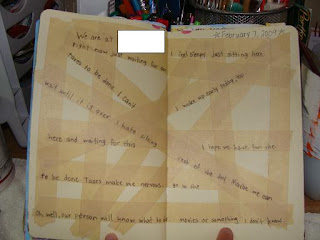 We are at
right now just waiting for our
taxes to be done. I can't
wait until it is over. I hate sitting
here and waiting for this
to be done. Taxes make me nervous.
Oh well, our person will know what to do.
February 7, 2009
I feel sleepy just sitting here.
I woke up early today, too.
I hope we have fun the
rest of the day. Maybe we can
go to the
movies or something. I don't know.